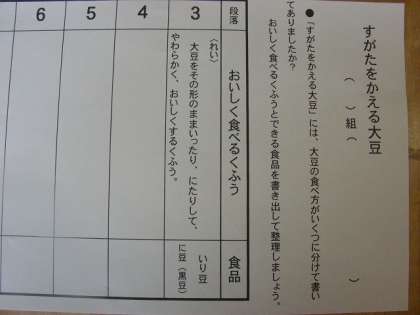 すがたをかえる大豆
（　　）組（　　　　　　）
●「すがたをかえる大豆」には、大豆の食べ方がいくつに分けて書い
てありましたか？
おいしく食べるくふうとできる食品を書き出して整理しましょう。
段落
おいしく食べるくふう
食品
3
〈れい〉
大豆をその形のままいったり、にたりして、
やわらかく、おいしくするくふう。
いり豆
に豆（黒豆）
4
5
6